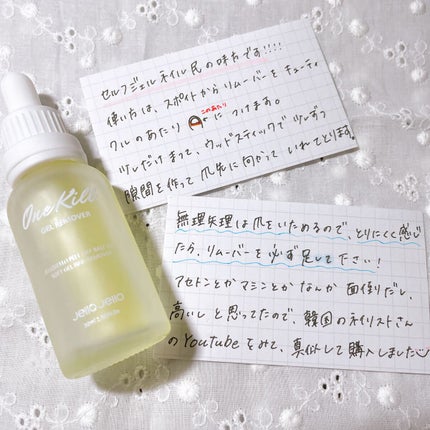 One Kill
GEL REMOVER
jello jello
セルフジェルネイル民の味方です!!!!
使い方は、スポイトからリムーバーをキューティ
このあたり
クルのあたり につけます。
少しだけまって、ウッドスティックで少しずつ
隙間を作って爪先に向かっていれてとります。
無理矢理は爪をいためるので、とりにくく感じ
たら、リムーバーを必ず足して下さい!
アセトンとかマシンとかなんか面倒だし、
高いしと思ってたので、韓国のネイリストさん
のYoutubeをみて、真似して購入しました